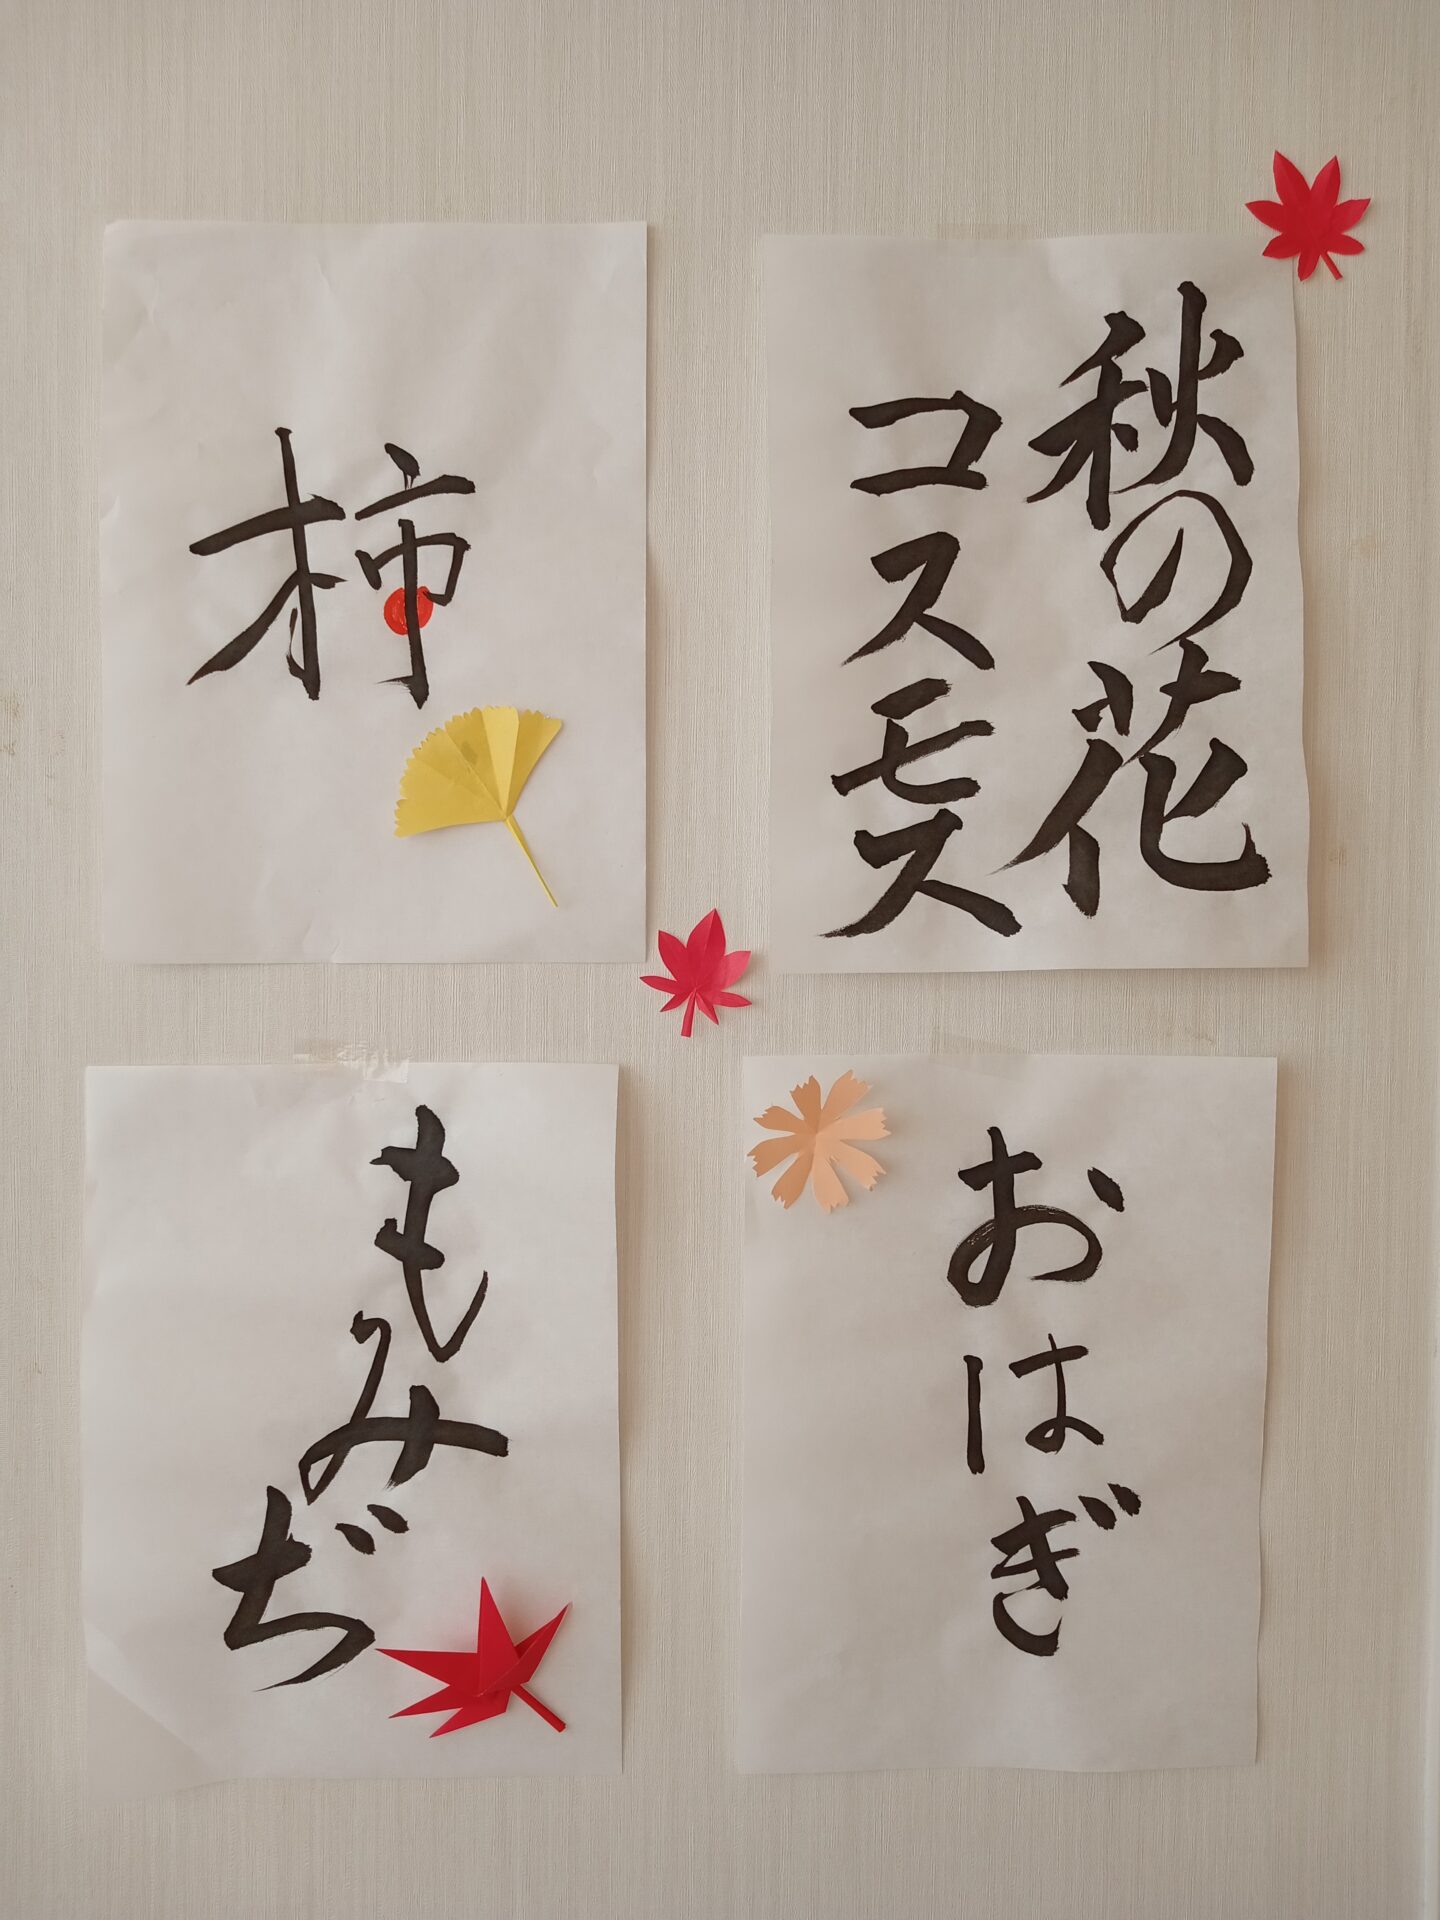 秋の花
コスモス
柿
おはぎ
もみぢ